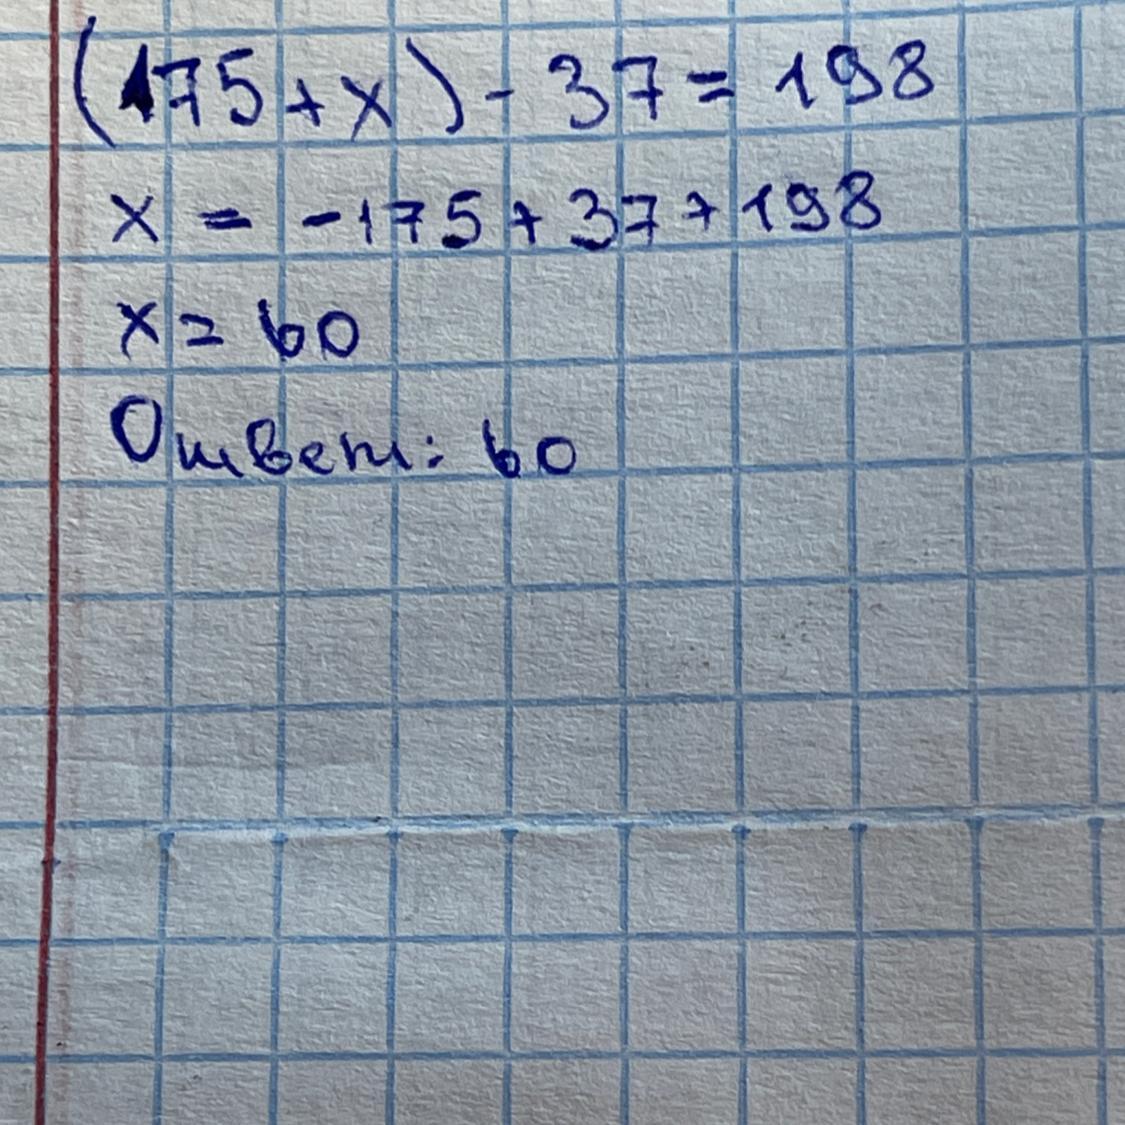 (175 + x) - 37 = 198
x = -175 + 37 + 198
x = 60
Ответ: 60